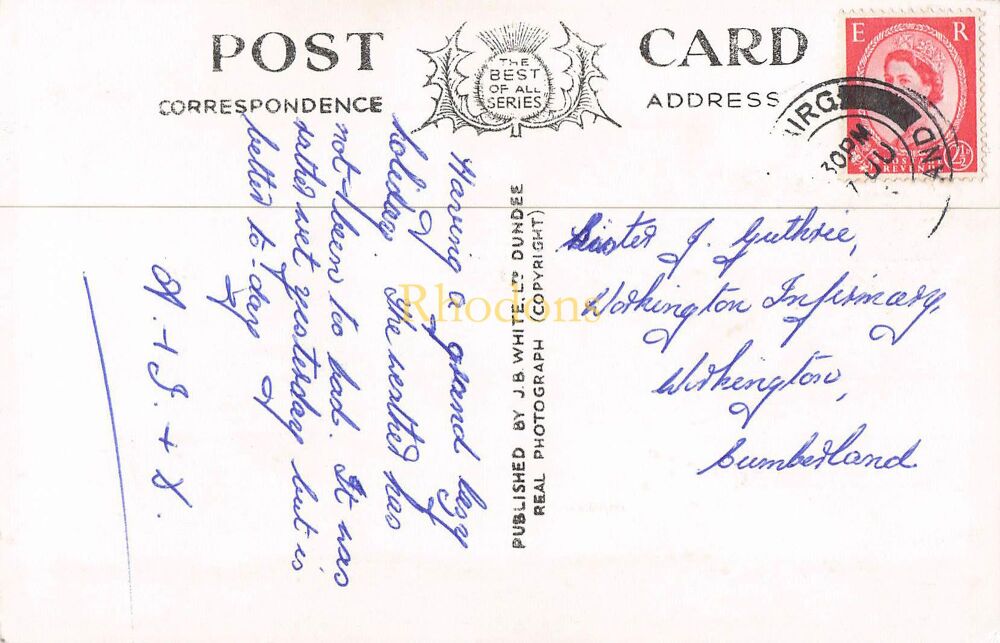 POST CARD
THE
BEST
OF ALL
SERIES
CORRESPONDENCE
ADDRESS
E R
AIRG
30PM
JU
AND
2½
POSTAGE
REVENUE
Having a grand lazy
holiday. The weather has
not been too bad. It was
rather wet yesterday but is
better to-day
PUBLISHED BY J.B. WHITE LTD DUNDEE
REAL PHOTOGRAPH (COPYRIGHT)
Rhodons
Sister J. Guthrie,
Workington Infirmary,
Workington,
Cumberland